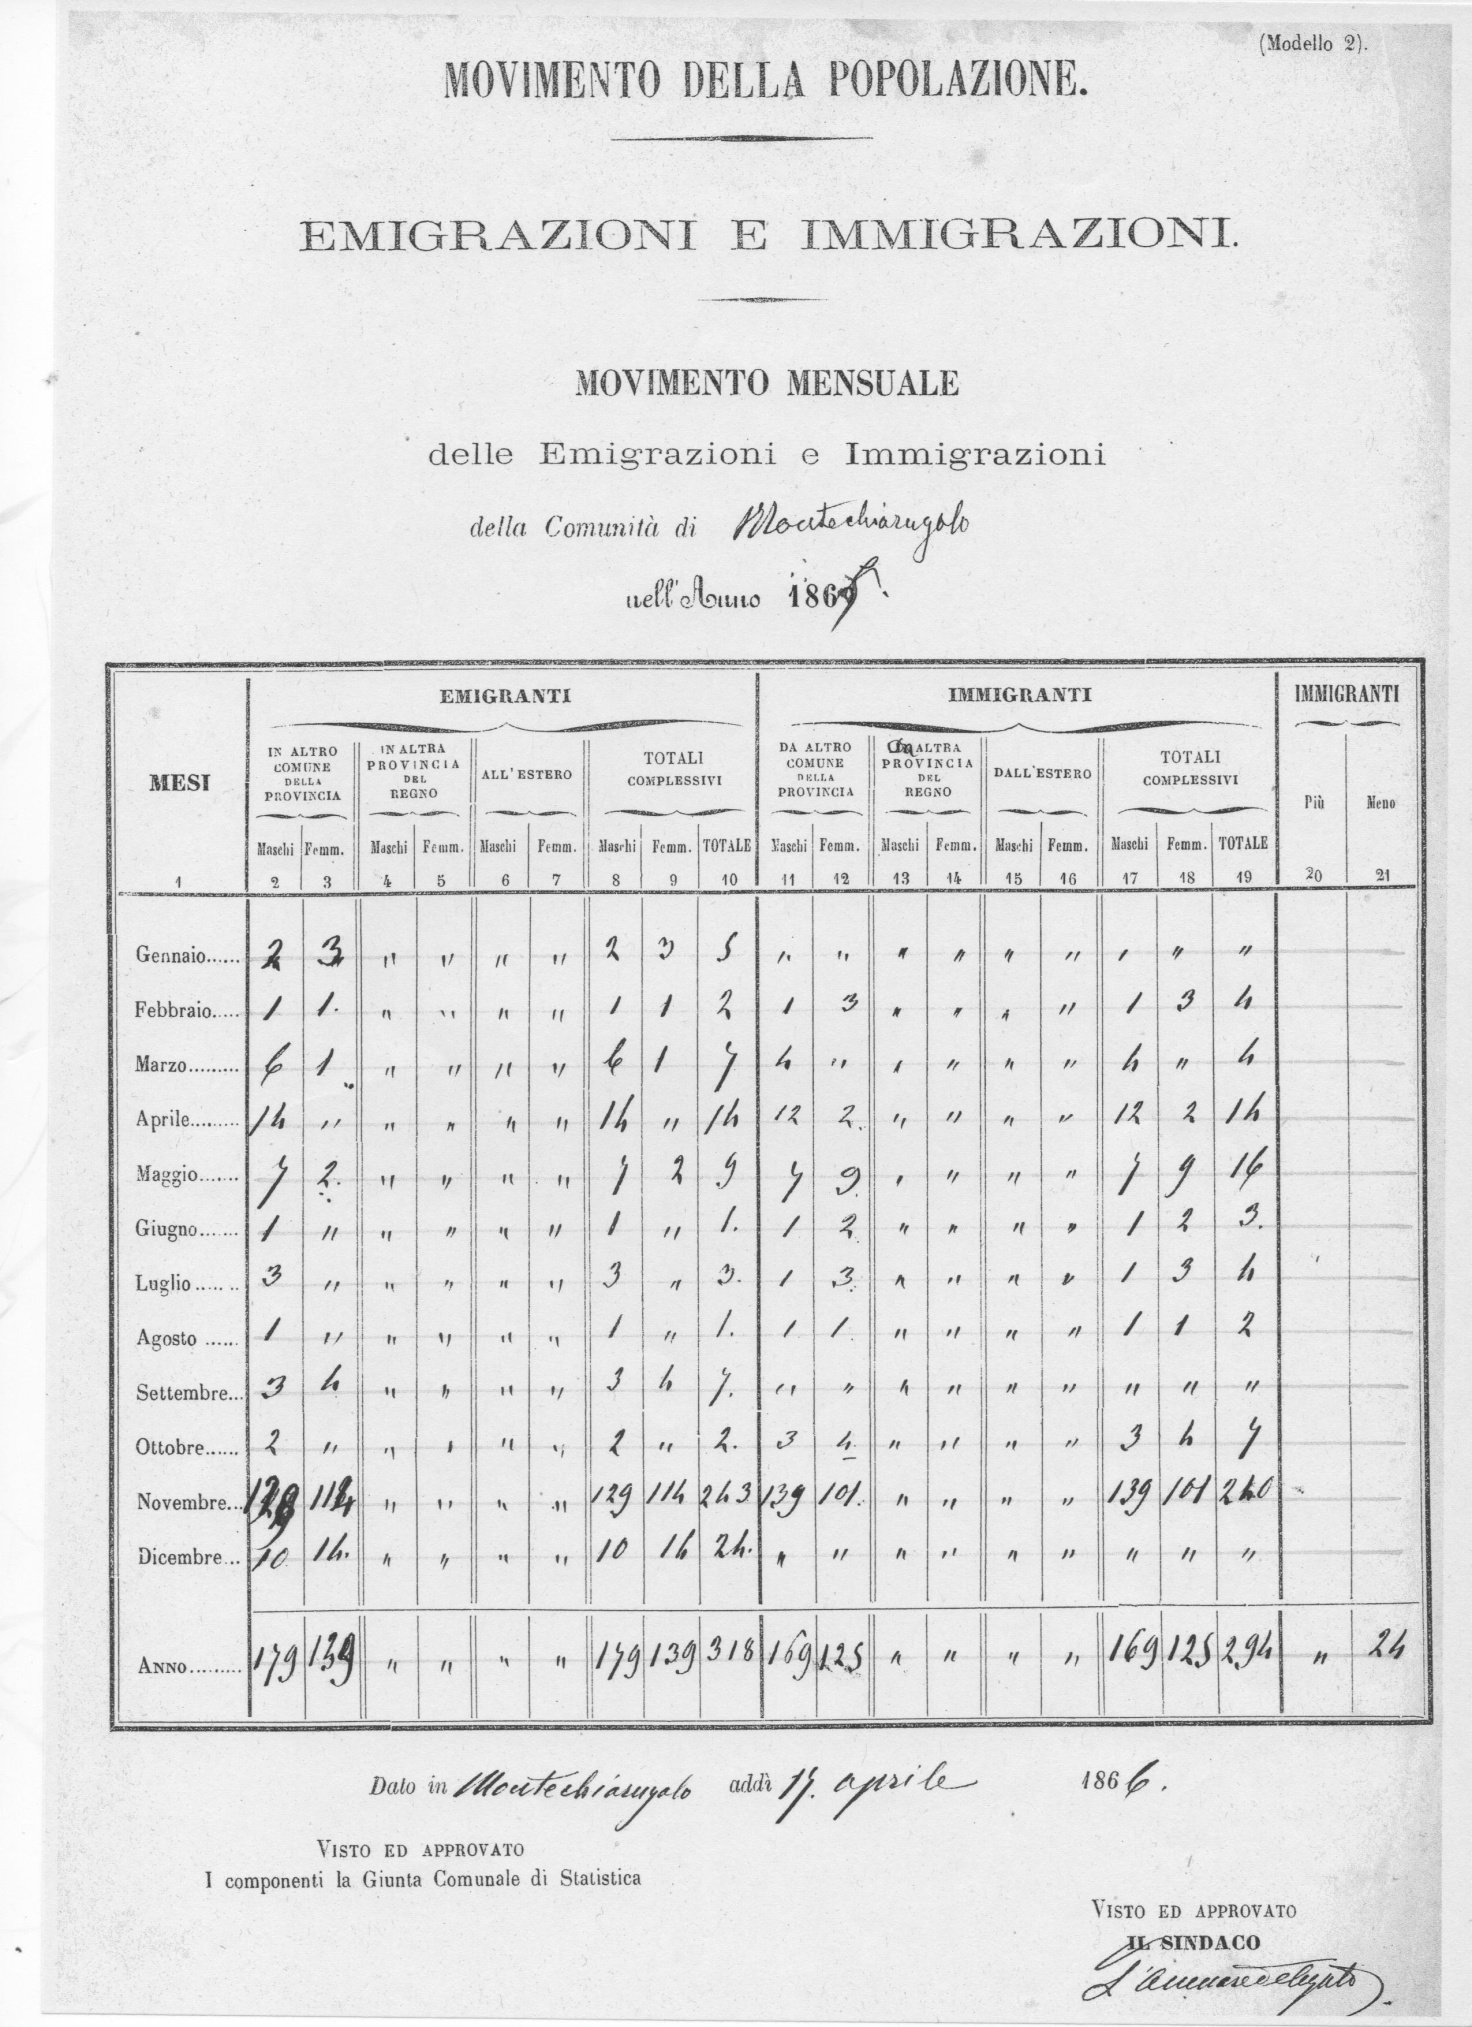 (Modello 2).
MOVIMENTO DELLA POPOLAZIONE.
EMIGRAZIONI E IMMIGRAZIONI.
MOVIMENTO MENSUALE
delle Emigrazioni e Immigrazioni
della Comunità di Montechiarugolo
nell'Anno 1865.
MESI EMIGRANTI IMMIGRANTI IMMIGRANTI
IN ALTRO COMUNE DELLA PROVINCIA IN ALTRA PROVINCIA DEL REGNO ALL'ESTERO TOTALI COMPLESSIVI DA ALTRO COMUNE DELLA PROVINCIA ALTRA PROVINCIA DEL REGNO DALL'ESTERO TOTALI COMPLESSIVI Più Meno
Maschi Femm. Maschi Femm. Maschi Femm. Maschi Femm. TOTALE Maschi Femm. Maschi Femm. Maschi Femm. Maschi Femm. TOTALE
1 2 3 4 5 6 7 8 9 10 11 12 13 14 15 16 17 18 19 20 21
Gennaio...... 2 3 " " " " 2 3 5 " " " " " " " " "
Febbraio..... 1 1. " " " " 1 1 2 1 3 " " " " 1 3 4
Marzo......... 6 1 " " " " 6 1 7 4 " " " " " 4 " 4
Aprile......... 14 " " " " " 14 " 14 12 2. " " " " 12 2 14
Maggio....... 7 2. " " " " 7 2 9 7 9. " " " " 7 9 16
Giugno....... 1 " " " " " 1 " 1. 1 2 " " " " 1 2 3.
Luglio ....... 3 " " " " " 3 " 3. 1 3. " " " " 1 3 4
Agosto ...... 1 " " " " " 1 " 1. 1 1. " " " " 1 1 2
Settembre... 3 4 " " " " 3 4 7. " " " " " " " " "
Ottobre...... 2 " " " " " 2 " 2. 3 4 " " " " 3 4 7
Novembre... 129 114 " " " " 129 114 243 139 101. " " " " 139 101 240
Dicembre... 10 14. " " " " 10 14 24. " " " " " " " " "
ANNO......... 179 139 " " " " 179 139 318 169 125 " " " " 169 125 294 " 24
Dato in Montechiarugolo addì 17. aprile 1866.
VISTO ED APPROVATO
I componenti la Giunta Comunale di Statistica
VISTO ED APPROVATO
IL SINDACO